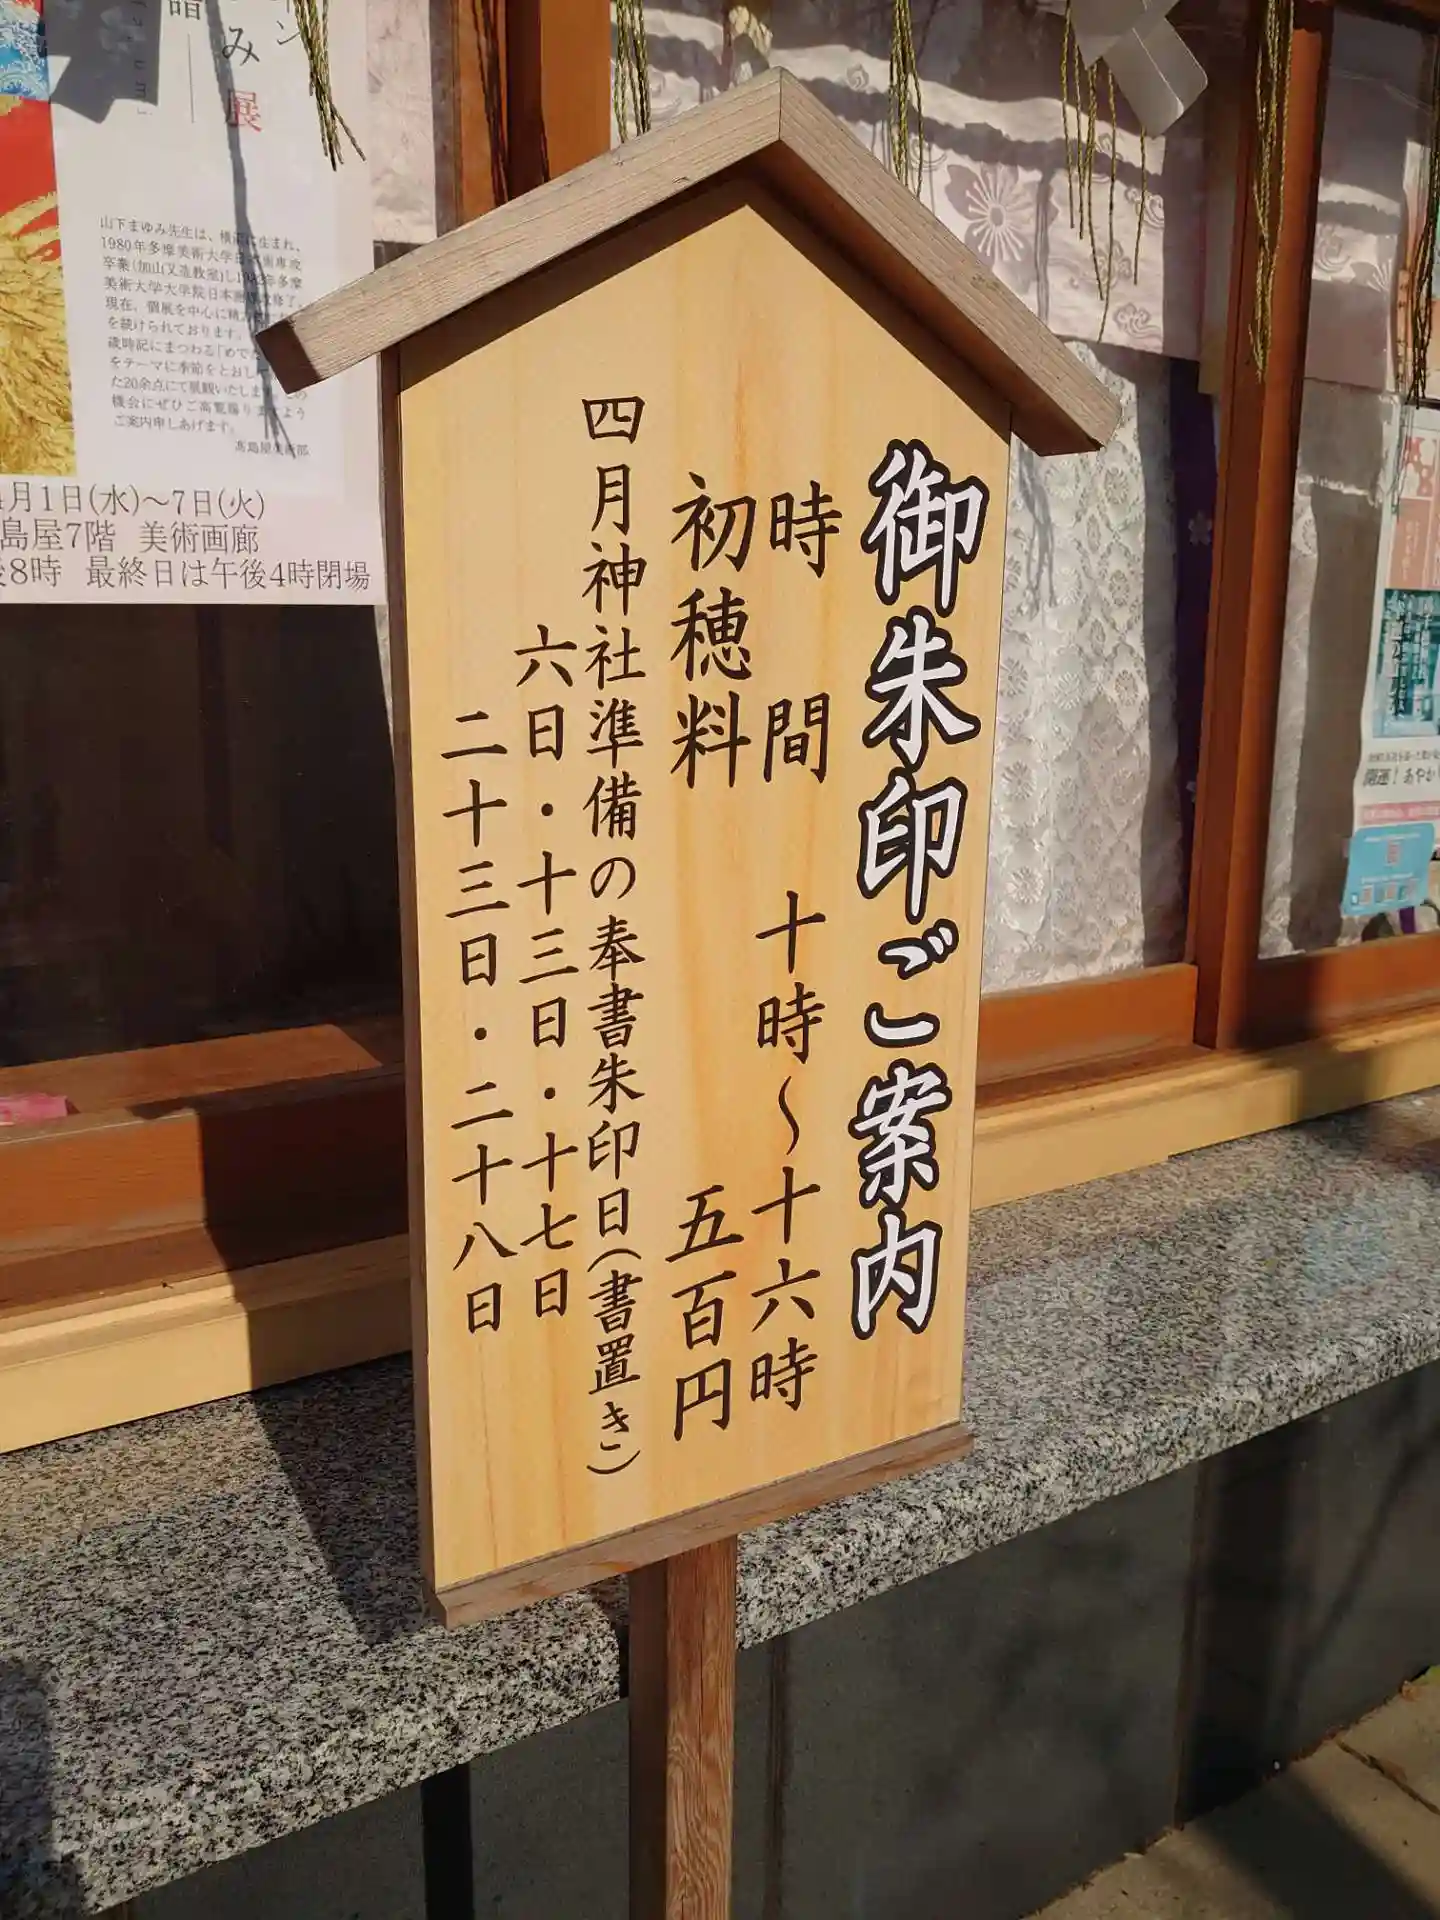 御朱印ご案内
時間 十時～十六時
初穂料 五百円
四月神社準備の奉書朱印日(書置き)
六日・十三日・十七日
二十三日・二十八日
み展
山下まゆみ先生は、横浜に生まれ、
1980年多摩美術大学日本画専攻
卒業(加山又造教室)し1982年多摩
美術大学大学院日本画
修了。
現在、個展を中心に
を続けられております。
歳時記にまつわる「めでた
をテーマに季節をとおし
た20余点にて展観いたします。
機会にぜひご高覧賜りますよう
ご案内申しあげます。
髙島屋美術部
4月1日(水)～7日(火)
島屋7階 美術画廊
後8時 最終日は午後4時閉場
開運！あやか